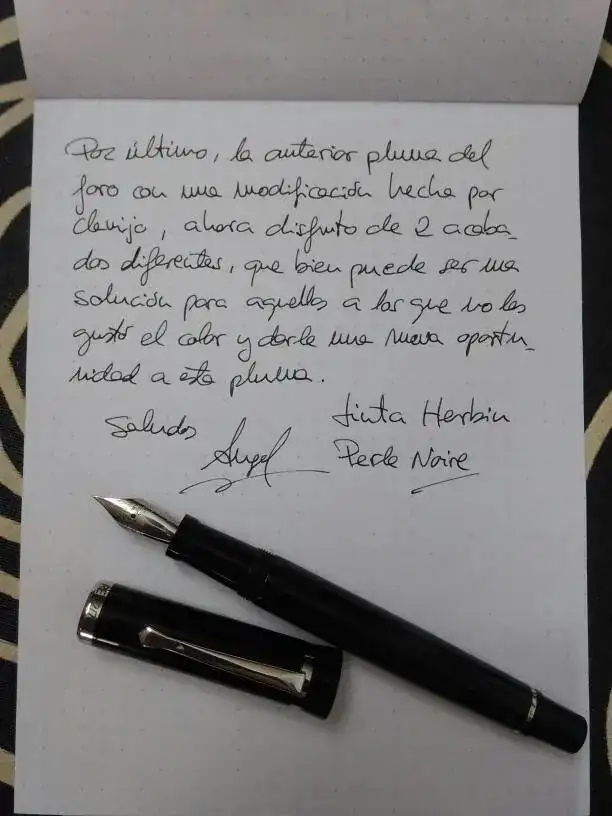 Por último, la anterior pluma del
foro con una modificación hecha por
clavijo, ahora disfruto de 2 acaba_
dos diferentes, que bien puede ser una
solución para aquellos a los que no les
gustó el color y darle una nueva oportu_
nidad a esta pluma.
Saludos
Ángel
tinta Herbin
Perle Noire